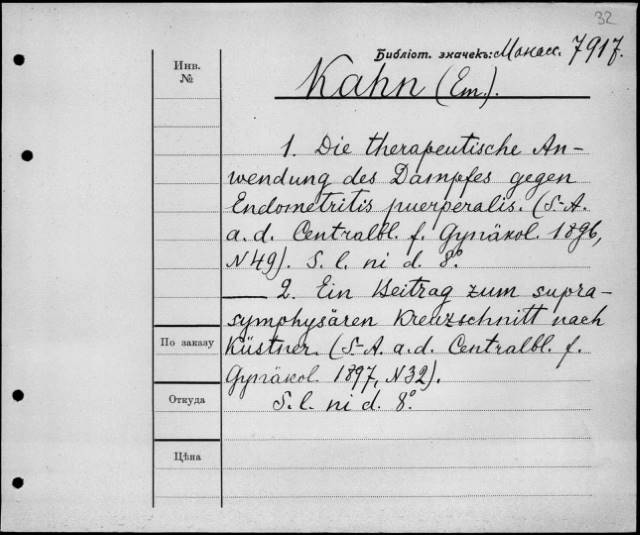 32
Инв.
№
Библіот. значекъ: Монасс. 7917.
Kahn (Em.).
1. Die therapeutische An-
wendung des Dampfes gegen
Endometritis puerperalis. (S-A.
a. d. Centralbl. f. Gynäkol. 1896,
N49). S. l. ni d. 8°.
— 2. Ein Beitrag zum supra-
symphysären Kreuzschnitt nach
Küstner. (S-A. a. d. Centralbl. f.
Gynäkol. 1897, N32).
S. l. ni d. 8°.
По заказу
Откуда
Цѣна